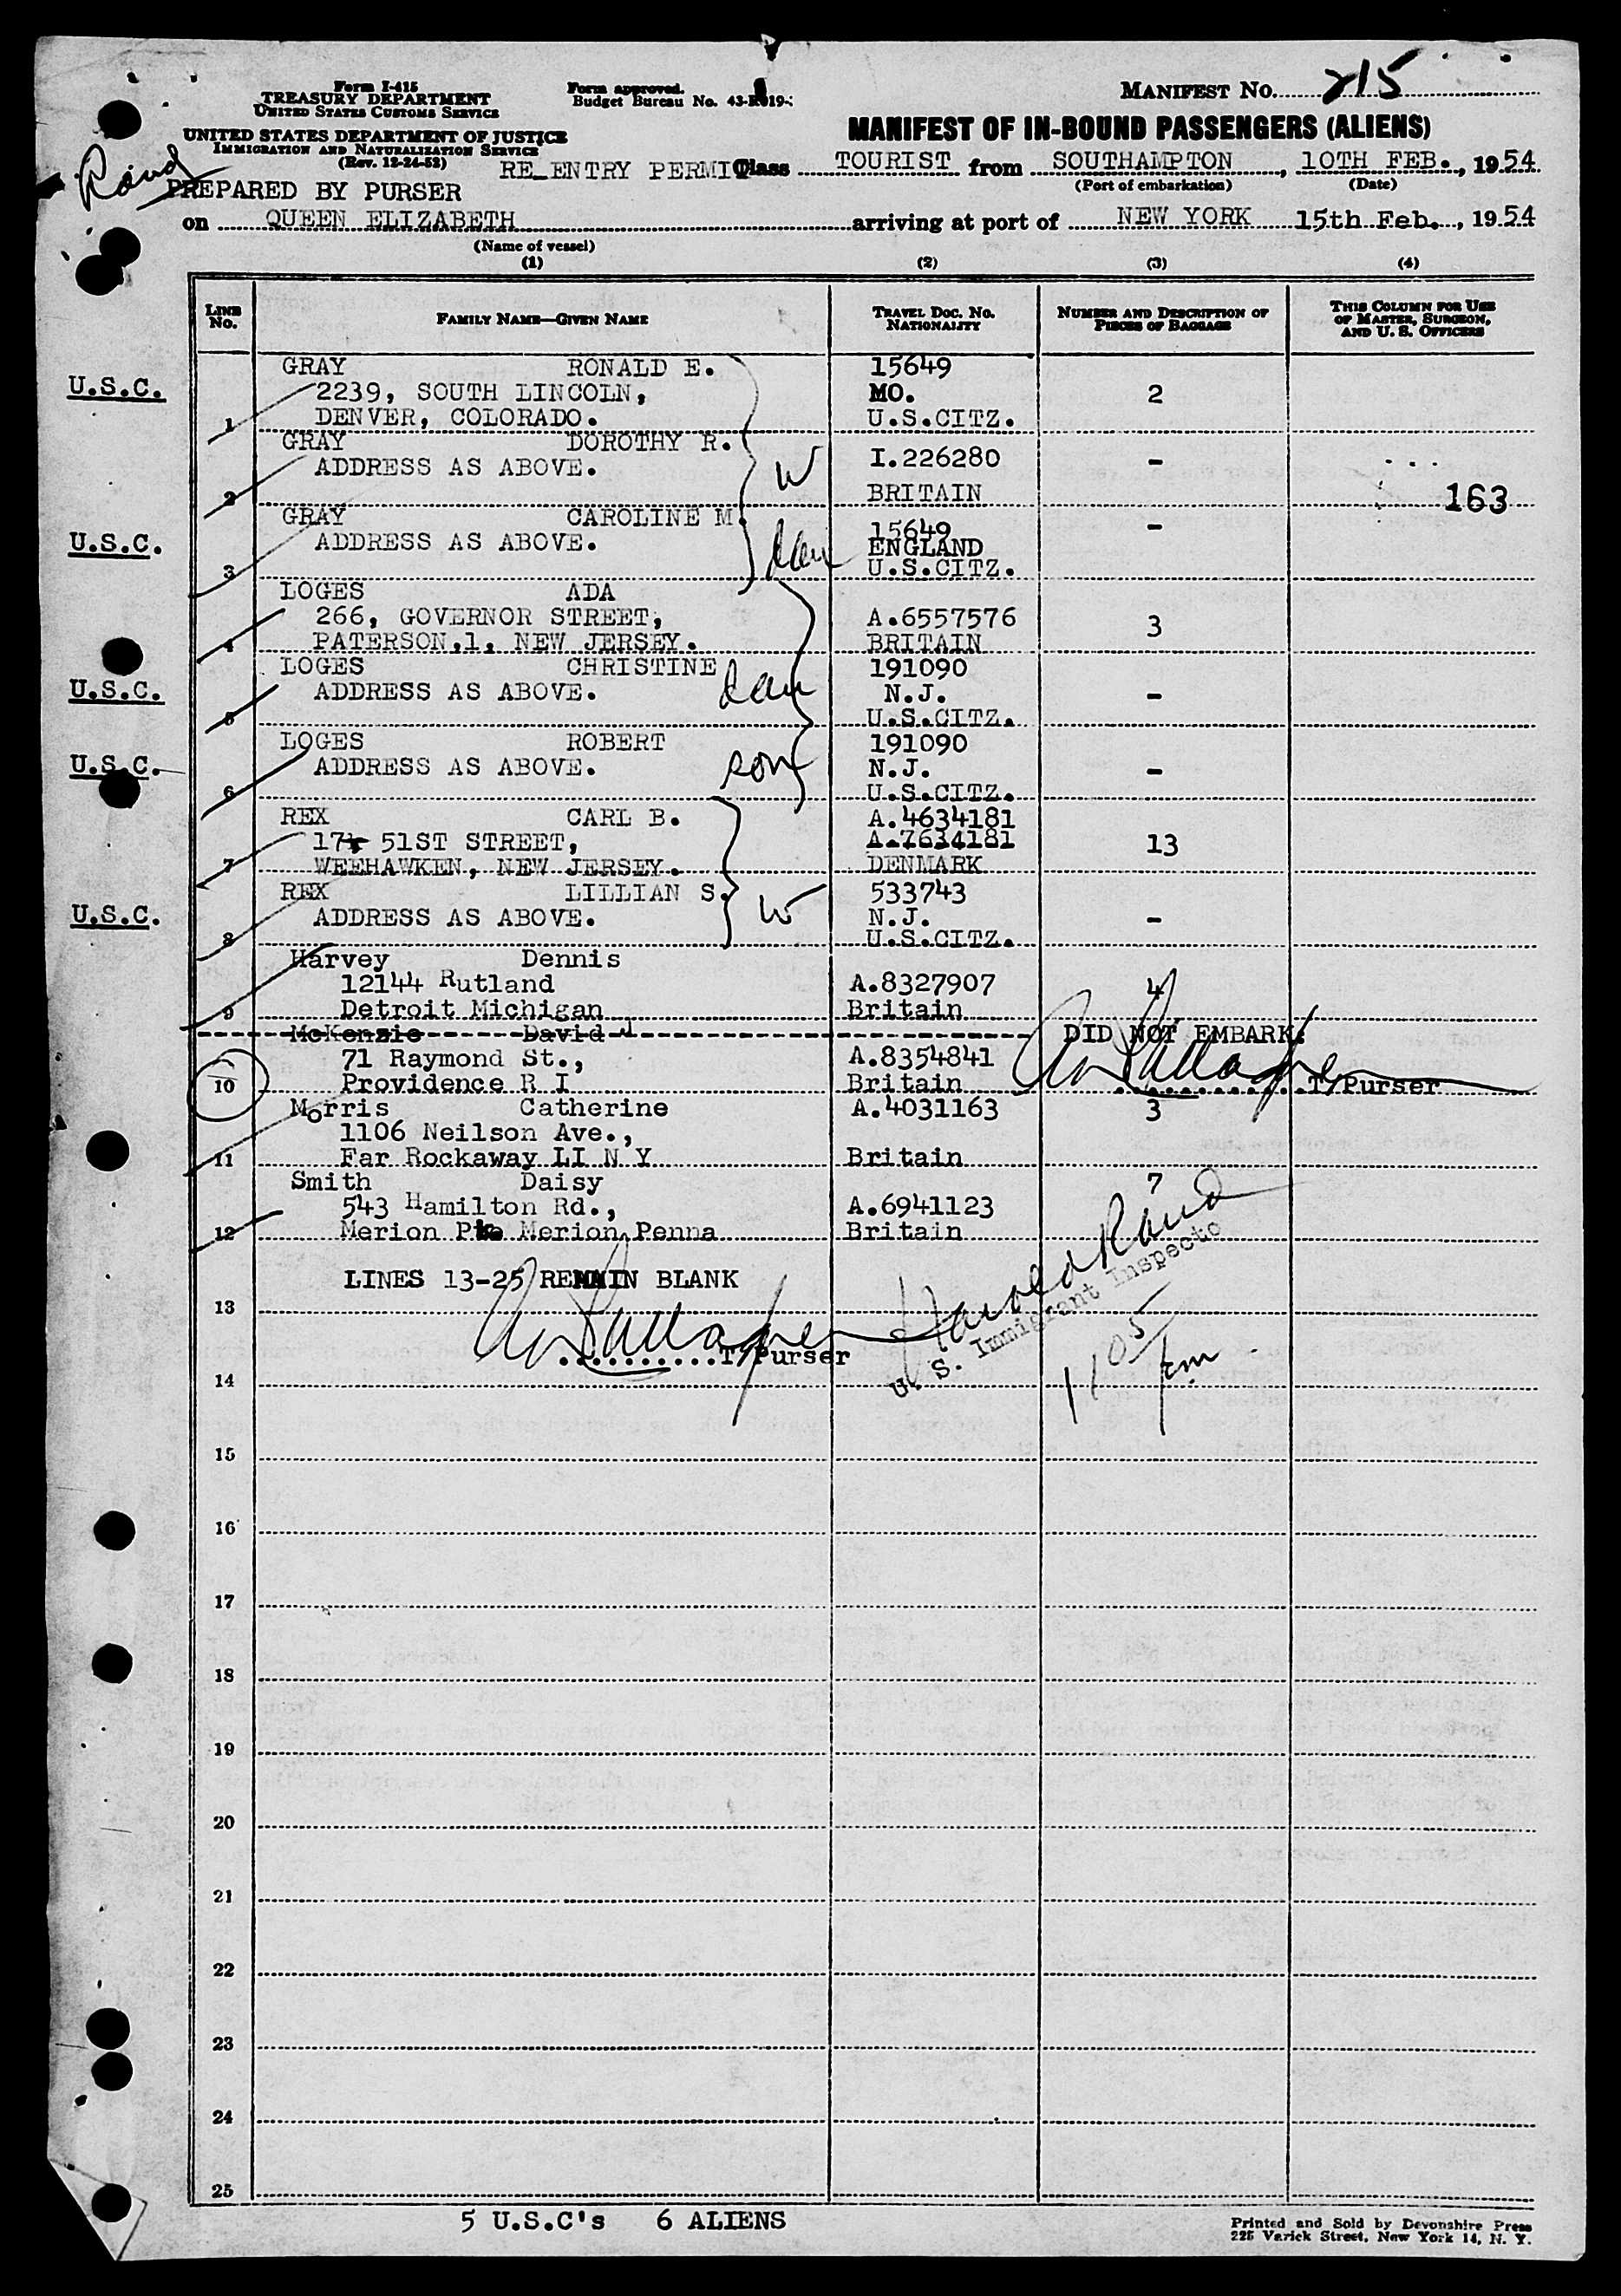 Form I-415
TREASURY DEPARTMENT
UNITED STATES CUSTOMS SERVICE
UNITED STATES DEPARTMENT OF JUSTICE
IMMIGRATION AND NATURALIZATION SERVICE
(Rev. 12-24-52)
Form approved.
Budget Bureau No. 43-R019-
MANIFEST No. 215
MANIFEST OF IN-BOUND PASSENGERS (ALIENS)
Rand
PREPARED BY PURSER
RE_ENTRY PERMIT Class TOURIST from SOUTHAMPTON, 10TH FEB., 1954
(Port of embarkation) (Date)
on QUEEN ELIZABETH arriving at port of NEW YORK 15th Feb., 1954
(Name of vessel)
(1) (2) (3) (4)
LINE No. FAMILY NAME—GIVEN NAME TRAVEL DOC. No. NATIONALITY NUMBER AND DESCRIPTION OF PIECES OF BAGGAGE THIS COLUMN FOR USE OF MASTER, SURGEON, AND U. S. OFFICERS
GRAY RONALD E. 15649
U.S.C. 2239, SOUTH LINCOLN, MO. 2
1 DENVER, COLORADO. U.S.CITZ.
GRAY DOROTHY R.
ADDRESS AS ABOVE. W I.226280 -
2 BRITAIN 163
GRAY CAROLINE M. 15649 -
U.S.C. ADDRESS AS ABOVE. dau ENGLAND
3 U.S.CITZ.
LOGES ADA
266, GOVERNOR STREET, A.6557576 3
4 PATERSON,1, NEW JERSEY. BRITAIN
LOGES CHRISTINE 191090
U.S.C. ADDRESS AS ABOVE. dau N.J. -
5 U.S.CITZ.
LOGES ROBERT 191090
U.S.C. ADDRESS AS ABOVE. son N.J. -
6 U.S.CITZ.
REX CARL B. A.4634181
174 51ST STREET, A.7634181 13
7 WEEHAWKEN, NEW JERSEY. DENMARK
REX LILLIAN S. 533743
U.S.C. ADDRESS AS ABOVE. W N.J. -
8 U.S.CITZ.
Harvey Dennis
12144 Rutland A.8327907 4
9 Detroit Michigan Britain
McKenzie David J DID NOT EMBARK:
71 Raymond St., A.8354841
10 Providence R I Britain T/Purser
Morris Catherine A.4031163 3
1106 Neilson Ave.,
11 Far Rockaway LI N Y Britain
Smith Daisy 7
543 Hamilton Rd., A.6941123
12 Merion Pke Merion Penna Britain
LINES 13-25 REMAIN BLANK
13
T/Purser
Harold Rand
U. S. Immigrant Inspecto
11 05 pm
14
15
16
17
18
19
20
21
22
23
24
25
5 U.S.C's 6 ALIENS
Printed and Sold by Devonshire Press
225 Varick Street, New York 14, N. Y.